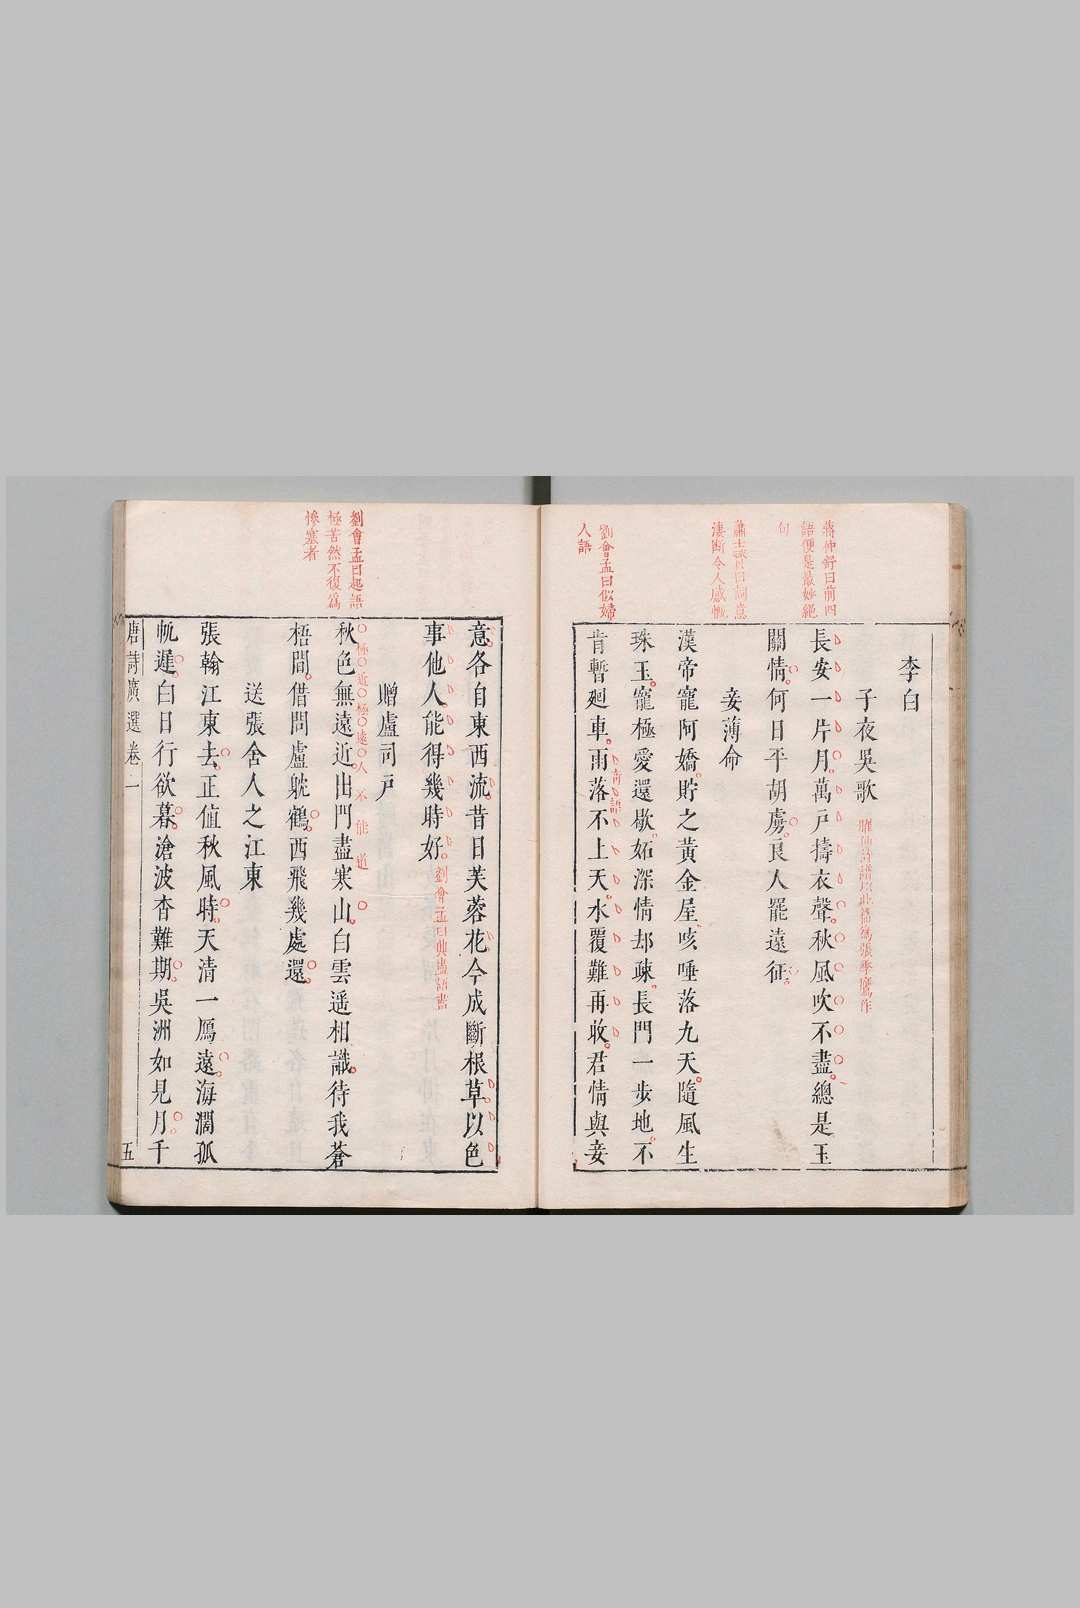 蔣仲舒曰前四
語便是最妙絕
句
蕭士贇曰詞意
淒斷令人感慨
劉會孟曰似婦
人語
李白
子夜吳歌
長安一片月萬戸擣衣聲秋風吹不盡總是玉
關情何日平胡虜良人罷遠征
妾薄命
漢帝寵阿嬌貯之黃金屋咳唾落九天隨風生
珠玉寵極愛還歇妬深情却疎長門一步地不
肯暫廻車雨落不上天水覆難再收君情與妾
情語
劉會孟曰起語
極苦然不復爲
慘悽者
意各自東西流昔日芙蓉花今成斷根草以色
事他人能得幾時好
劉會孟曰興盡語盡
贈盧司戸
秋色無遠近出門盡寒山白雲遥相識待我蒼
極近極遠人不能道
梧間借問盧躭鶴西飛幾處還
送張舍人之江東
張翰江東去正值秋風時天清一鴈遠海濶孤
帆遲白日行欲暮滄波杳難期吳洲如見月千
唐詩廣選卷一
五